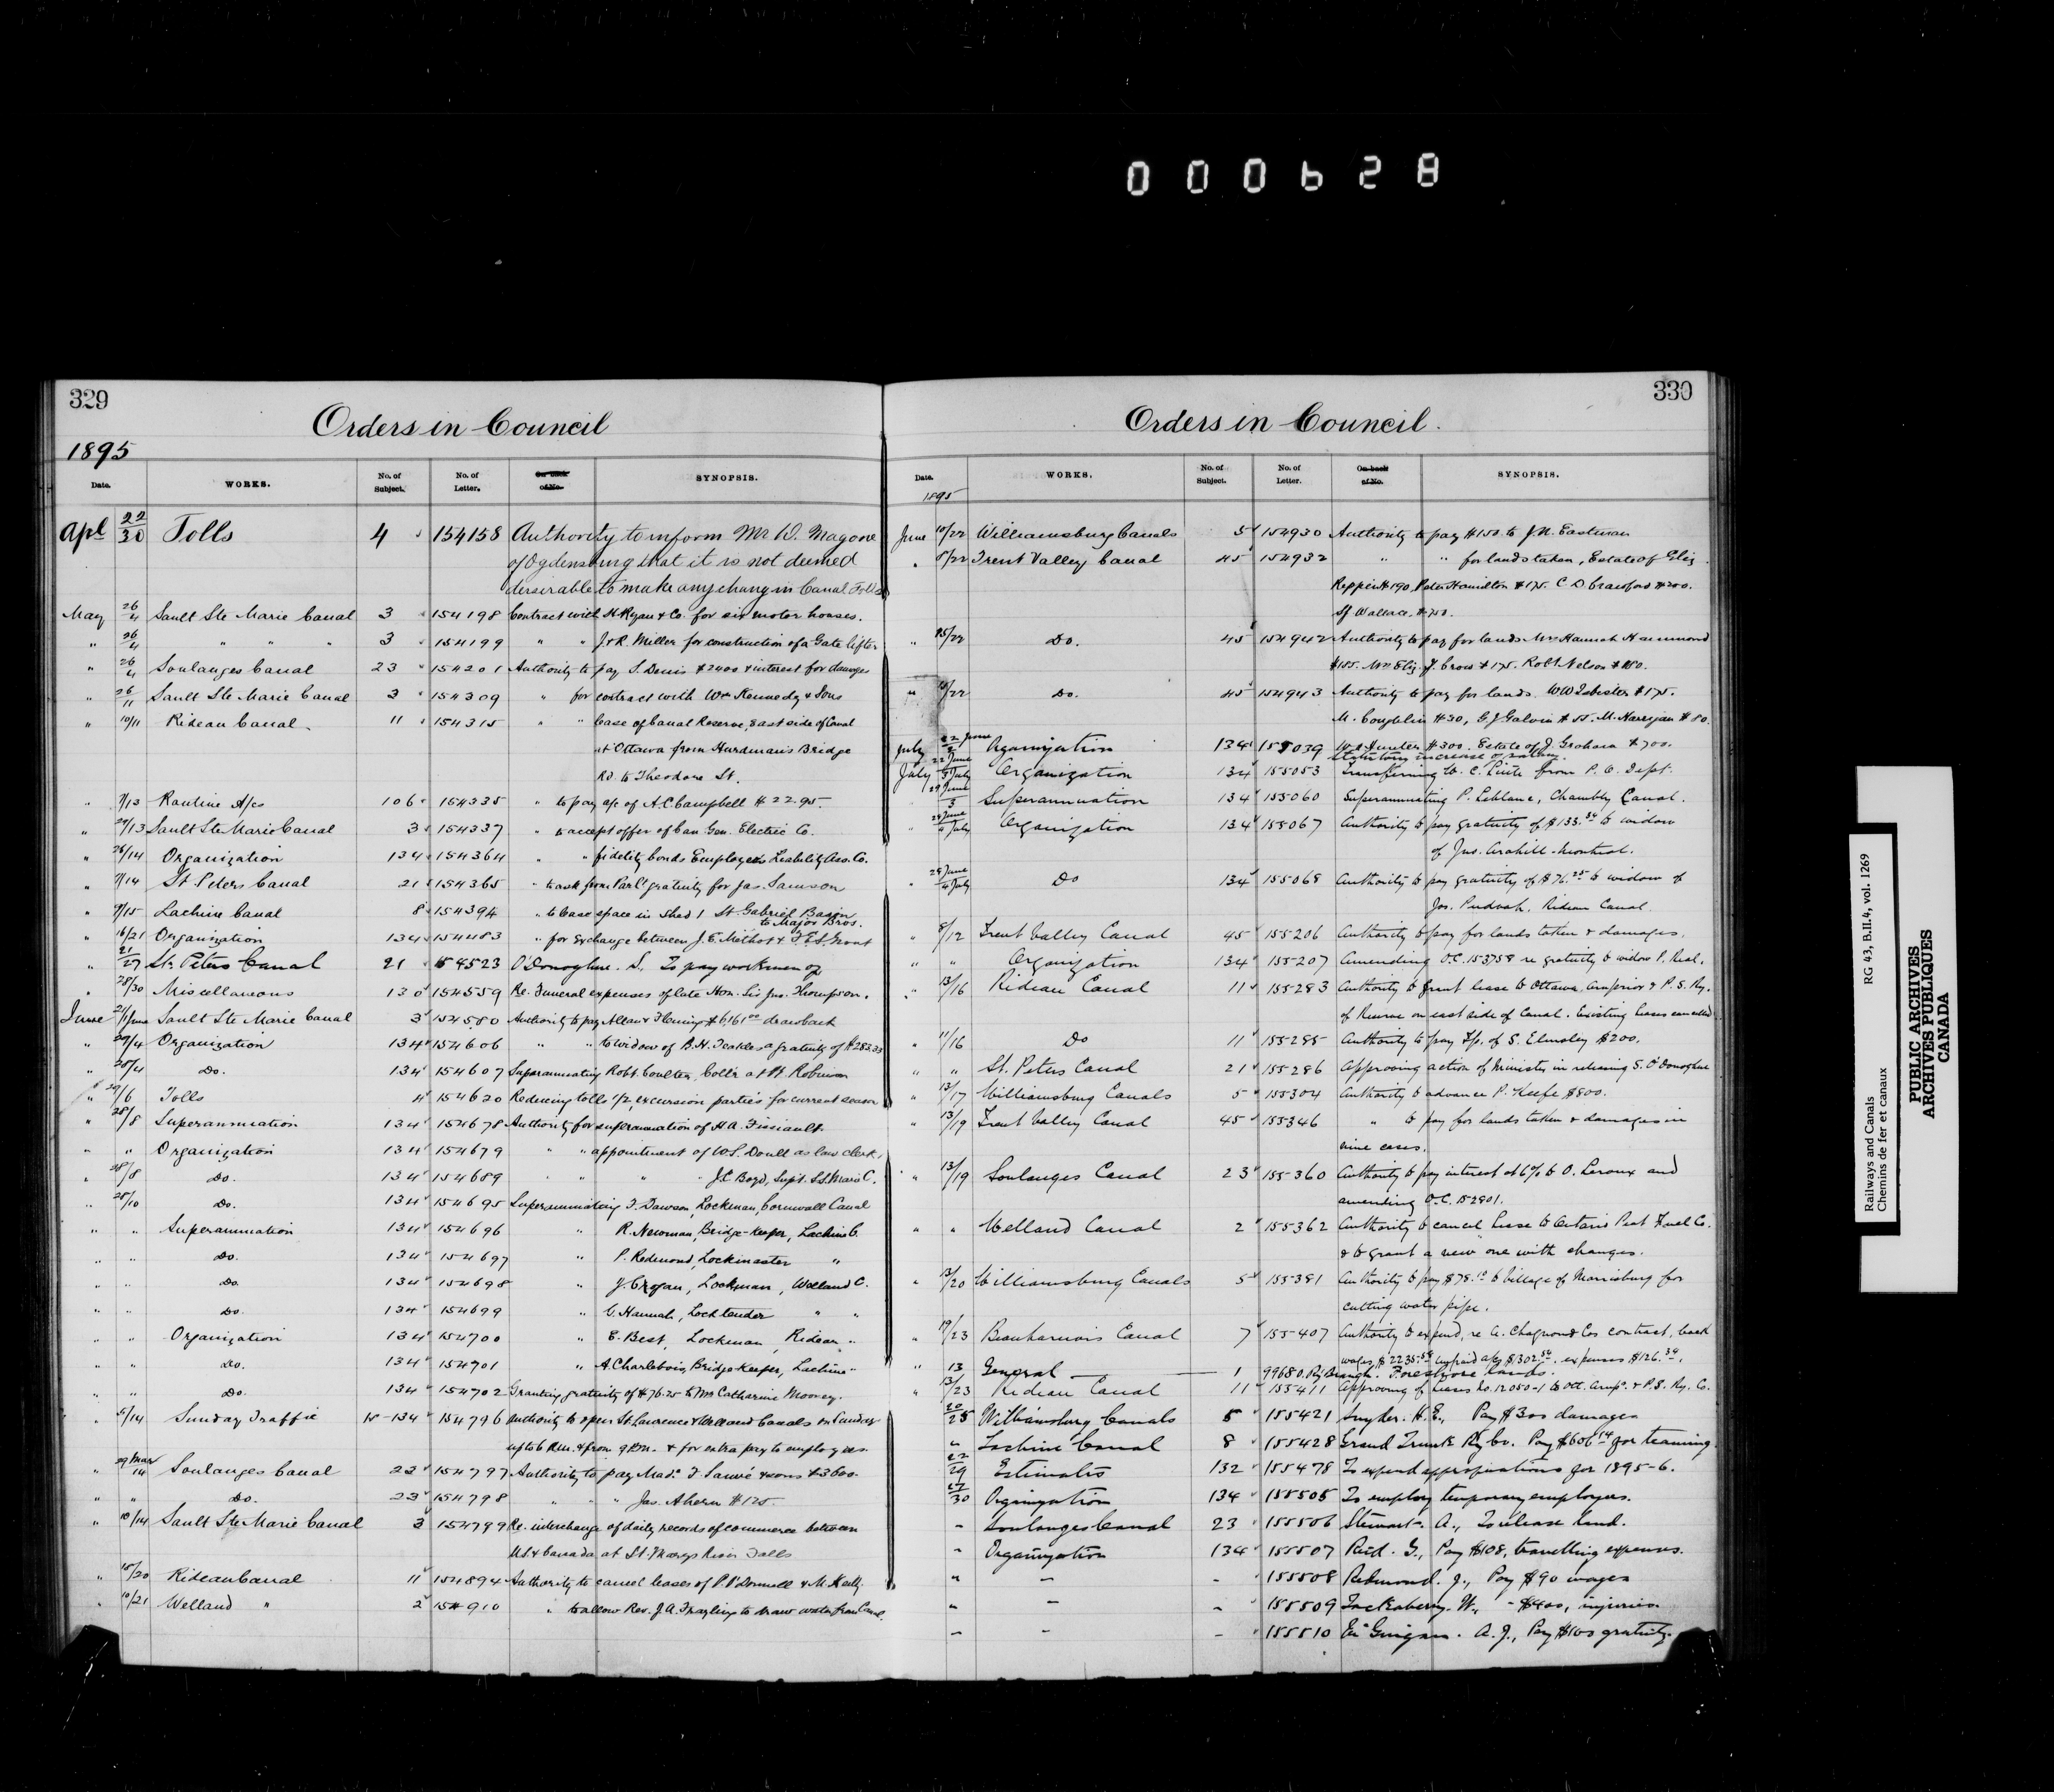 000628
329
Orders in Council
1895
Date. WORKS. No. of Subject. No. of Letter. On back of No. SYNOPSIS.
Apl 22/30 Tolls 4 154158 Authority to inform Mr. D. Magone
of Ogdensburg that it is not deemed
desirable to make any change in Canal Tolls
May 26/4 Sault Ste Marie Canal 3 154198 Contract with H. Ryan & Co. for six motor houses.
" 26/4 " " " 3 154199 " " J & R. Miller for construction of a Gate lifter
" 26/4 Soulanges Canal 23 154201 Authority to pay S. Denis $2400 & interest for damages
" 26/11 Sault Ste Marie Canal 3 154309 " for contract with Wm Kennedy & Sons
" 10/11 Rideau Canal 11 154315 " " lease of Canal Reserve, East side of Canal
at Ottawa from Hurdman's Bridge
Rd. to Theodore St.
" 9/13 Routine A/cs 106 154335 " to pay a/c of A.C. Campbell $22.95.
" 29/13 Sault Ste Marie Canal 3 154337 " to accept offer of Can. Gen. Electric Co.
" 26/14 Organization 134 154364 " " fidelity bonds Employers Liability Ass. Co.
" 9/14 St. Peters Canal 21 154365 " to ask from Parlt gratuity for Jas. Samson
" 9/15 Lachine Canal 8 154394 " to lease space in Shed 1 St. Gabriel Basin
to Major Bros.
" 16/21 Organization 134 154483 " for exchange between J.E. Methot & F.E.S. Grout
" 21/27 St. Peters Canal 21 154523 O'Donoghue. S., To pay workmen of
" 28/30 Miscellaneous 130 154559 Re. Funeral expenses of late Hon. Sir Jno. Thompson.
June 21/1 June Sault Ste Marie Canal 3 154580 Authority to pay Allan & Fleming $6,161.00 drawback
" 29/4 Organization 134 154606 " " to widow of B.H. Teakles a gratuity of $283.33
" 28/4 Do. 134 154607 Superannuating Robt. Coulter, Collr. at Pt. Robinson
" 29/6 Tolls 4 154620 Reducing tolls 1/2, excursion parties for current season
" 28/8 Superannuation 134 154678 Authority for superannuation of H.A. Fissiault.
" " Organization 134 154679 " " appointment of W.S. Doull as law clerk.
" 28/8 Do. 134 154689 " " " " J.C. Boyd, Supt. S.S. Marie C.
" 28/10 Do. 134 154695 Superannuating T. Dawson, Lockman, Cornwall Canal
" " Superannuation 134 154696 " R. Newman, Bridge-Keeper, Lachine C.
" " Do. 134 154697 " P. Redmond, Lockmaster "
" " Do. 134 154698 " J. Crogan, Lockman, Welland C.
" " Do. 134 154699 " C. Hannah, Locktender " "
" " Organization 134 154700 " E. Best, Lockman, Rideau "
" " Do. 134 154701 " A. Charlebois, Bridge-Keeper, Lachine "
" " Do. 134 154702 Granting gratuity of $76.25 to Mrs Catharine Mooney.
" 5/14 Sunday Traffic 15-134 154796 Authority to open St. Lawrence & Welland Canals on Sunday
up to 6 A.M. & from 9 P.M. & for extra pay to employees.
" 29 May/14 Soulanges Canal 23 154797 Authority to pay Mad. F. Sauvé & sons $3600.
" " Do. 23 154798 " " " Jas. Ahern $125.
" 10/14 Sault Ste Marie Canal 3 154799 Re. interchange of daily records of commerce between
U.S. & Canada at St. Marys River Falls
" 15/20 Rideau Canal 11 154894 Authority to cancel leases of P. O'Donnell & M. Kelly.
" 10/21 Welland " 2 154910 " to allow Rev. J.A. to draw water from Canal
330
Orders in Council.
Date. WORKS. No. of Subject. No. of Letter. On back of No. SYNOPSIS.
1895
June 10/22 Williamsburg Canals 5 154930 Authority to pay $150 to J.N. Eastman
" 8/22 Trent Valley Canal 45 154932 " " for lands taken, Estate of Eliz.
$190, Peter Hamilton $175. C.D. Crawford $200.
Wallace, $750.
" 15/22 Do. 45 154942 Authority to pay for lands Mrs Hannah Hammond
$185. Mrs Eliz. J. Cross $175. Robt. Nelson $180.
" 10/22 Do. 45 154943 Authority to pay for lands. W.W. Isbister $175.
M. Coughlin $30, G.J. Galvin $55. M. Harrigan $80.
July 22 June/2 Organization 134 155039 W.A. Hunter $300. Estate of J. Graham $700.
Statutory increase of salary.
July 22 June/3 July Organization 134 155053 Transferring W.C. Little from P.O. Dept.
29 June/3 Superannuation 134 155060 Superannuating P. Leblanc, Chambly Canal.
" 28 June/4 July Organization 134 155067 Authority to pay gratuity of $133.34 to widow
of Jno. Arahill - Montreal.
" 28 June/4 July Do 134 155068 Authority to pay gratuity of $76.25 to widow of
Jos. Pudvah, Rideau Canal.
" 8/12 Trent Valley Canal 45 155206 Authority to pay for lands taken & damages.
" " Organization 134 155207 Amending O.C. 153758 re gratuity to widow P. Real.
" 13/16 Rideau Canal 11 155283 Authority to grant lease to Ottawa, Arnprior & P.S. Ry.
of Reserve on east side of Canal. Existing leases cancelled.
" 11/16 Do 11 155285 Authority to pay Tp. of S. Elmsley $200.
" " St. Peters Canal 21 155286 Approving action of Minister in relieving S. O'Donoghue
" 13/17 Williamsburg Canals 5 155304 Authority to advance P. Keefe $800.
" 13/19 Trent Valley Canal 45 155346 " to pay for lands taken & damages in
nine cases.
" 13/19 Soulanges Canal 23 155360 Authority to pay interest at 6% to O. Leroux and
amending O.C. 152901.
" " Welland Canal 2 155362 Authority to cancel lease to Ontario Peat Fuel Co.
& to grant a new one with changes.
" 13/20 Williamsburg Canals 5 155391 Authority to pay $78.10 to Village of Morrisburg for
cutting water pipe.
" 19/23 Beauharnois Canal 7 155407 Authority to expend, re A. Chagnon & Cos contract, back
wages $2235.54 unpaid a/cs $1302.54. expenses $126.34.
" 13 General 1 99680. Ry Branch. Foreshore lands.
" 13/23 Rideau Canal 11 155411 Approving of leases No. 12050-1 to Ott. Arnp. & P.S. Ry. Co.
20/25 Williamsburg Canals 5 155421 Snyder. H.E., Pay $300 damages
" Lachine Canal 8 155428 Grand Trunk Ry Co. Pay $606.14 for teaming.
22/29 Estimates 132 155478 To expend appropriations for 1895-6.
27/30 Organization 134 155505 To employ temporary employees.
" Soulanges Canal 23 155506 Stewart. A., To release land.
" Organization 134 155507 Reid. G., Pay $108, travelling expenses.
" " " 155508 Redmond. J., Pay $90 wages
" " " 155509 W., " $400, injuries.
" " " 155510 A.J., Pay $100 gratuity.
Railways and Canals
Chemins de fer et canaux
RG 43, B.II.4, vol. 1269
PUBLIC ARCHIVES
ARCHIVES PUBLIQUES
CANADA